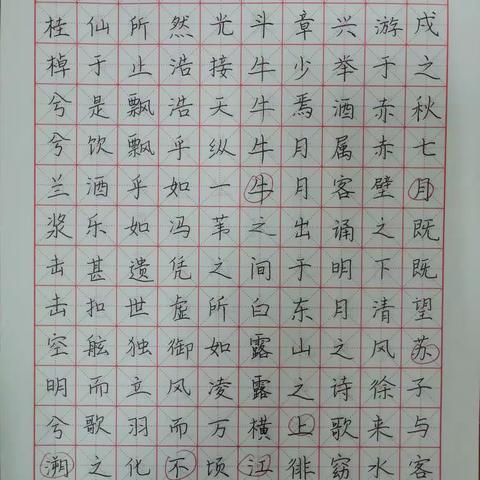 戌之秋七月既既望苏子与客
游于赤赤壁之下清风徐来水
兴举酒属客诵明月之诗歌窈
章少焉月月出于东山之上徘
斗牛牛牛牛之间白露露横江
光接天纵一苇之所如凌万顷
然浩浩乎如冯凭虚御风而不
所止飘飘乎如遗世独立羽化
仙于是饮酒乐甚扣舷而歌之
桂棹兮兮兰浆击击空明兮溯